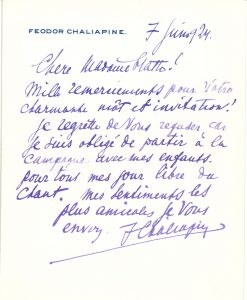 FEODOR CHALIAPINE.
7 Juin 924.
Chere Madame
Mille remerciements pour Votre
charmante môt et invitation!
Je regrète de Vous refuser car
je suis obligé de partir à la
campagne avec mes enfants
pour tous mes jour libre du
Chant. Mes sentiments les
plus amicales je Vous
envoy. FChaliapin